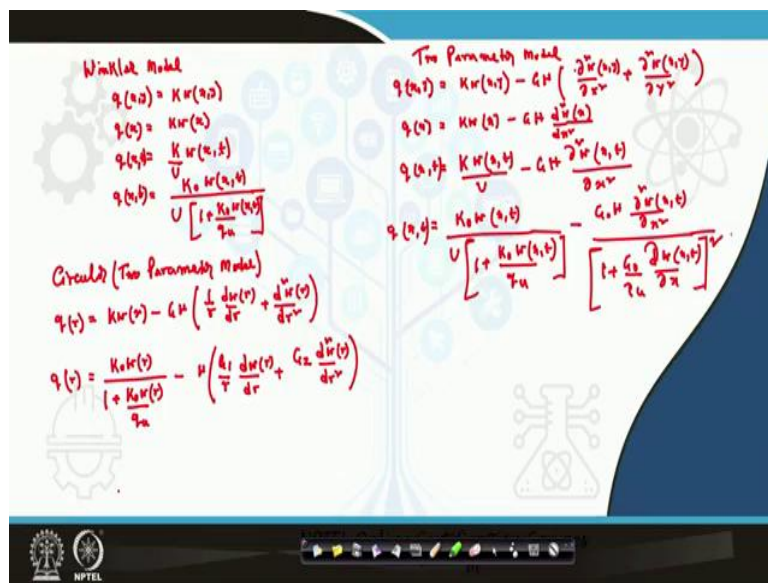 Winkler Model
q(x,y) = Kw(x,y)
q(x) = Kw(x)
q(x,t) = K/U w(x,t)
q(x,t) = K₀w(x,t) / U[1 + K₀w(x,t)/qu]
Circular (Two Parameter Model)
q(r) = Kw(r) - GH(1/r dw(r)/dr + d²w(r)/dr²)
q(r) = K₀w(r) / 1 + K₀w(r)/qu - H(G₁/r dw(r)/dr + G₂ d²w(r)/dr²)
Two Parameter Model
q(x,y) = Kw(x,y) - GH(∂²w(x,y)/∂x² + ∂²w(x,y)/∂y²)
q(x) = Kw(x) - GH d²w(x)/dx²
q(x,t) = Kw(x,t)/U - GH ∂²w(x,t)/∂x²
q(x,t) = K₀w(x,t) / U[1 + K₀w(x,t)/qu] - G₀H ∂²w(x,t)/∂x² / [1 + G₀/τu ∂w(x,t)/∂x]²
NPTEL